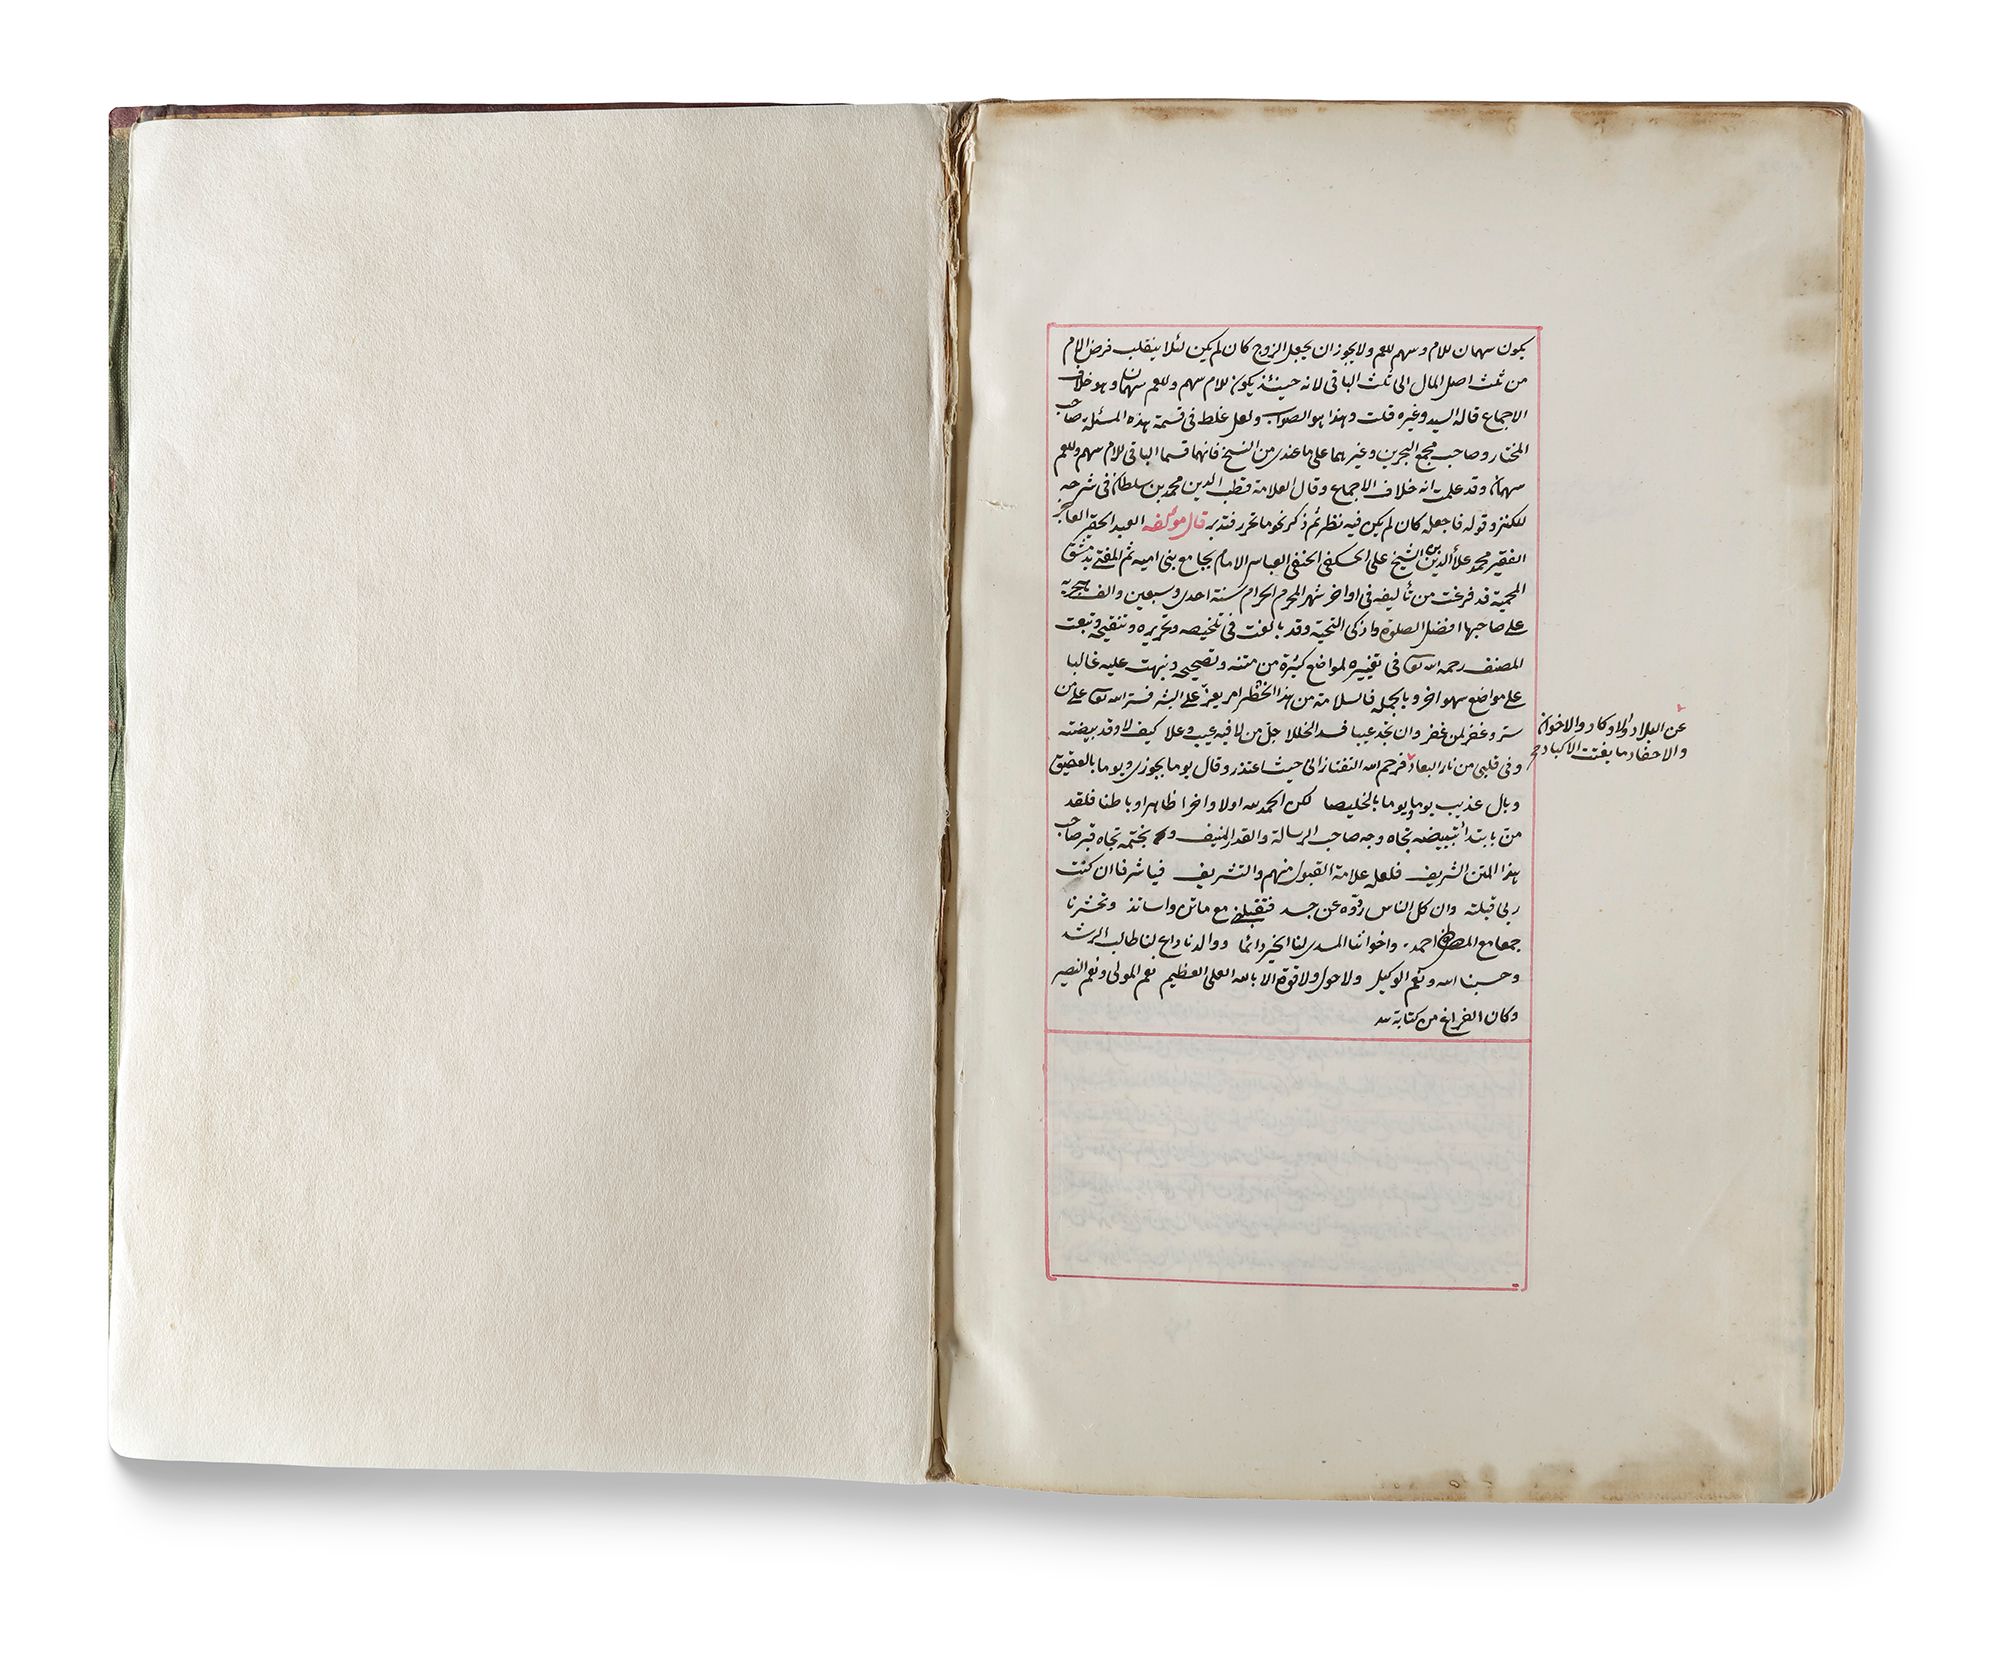 يكون سهمان للام وسهم للعم ولا يجوز ان يجعل الزوج كان لم يكن لئلا ينقلب فرض الام
من ثلث اصل المال الى ثلث الباقى لانه حينئذ يكون للام سهم وللعم سهمان وهو خلاف
الاجماع قاله السيد وغيره قلت وهذا هو الصواب ولعل غلط فى قسمة هذه المسئلة صاحب
المختار وصاحب مجمع البحرين وغيرهما على ما عندى من النسخ فانهما قسما الباقى للام سهم وللعم
سهمان وقد علمت انه خلاف الاجماع وقال العلامة قطب الدين محمد بن سلطان فى شرحه
للكنز وقوله فاجعله كان لم يكن فيه نظر ثم ذكر نحو ما تحرر فتدبر قال مؤلفه العبد الحقير العاجز
الفقير محمد علاء الدين بن الشيخ على الحصكفى الحنفى العباسى الامام بجامع بنى اميه ثم المفتى بدمشق
المحمية قد فرغت من تأليفه فى اواخر شهر المحرم الحرام سنة احدى وسبعين والف هجريه
على صاحبها افضل الصلوة وازكى التحية وقد بالغت فى تلخيصه وتحريره وتنقيحه وتبعت
المصنف رحمه الله تعا فى تغييره لمواضع كثيرة من متنه وتصحيحه ونبهت عليه غالبا
على مواضع سهو اخر وبالجمله فالسلامة من هذا الخطر امر يعز على البشر فستر الله تعا على من
ستر وغفر لمن غفر وان تجد عيبا فسد الخللا جل من لا فيه عيب وعلا كيف لا وقد بيضته
وفى قلبى من نار البعاد فرحم الله التفتازانى حيث اعتذر وقال يوما بحزوى ويوما بالعقيق
عن البلاد والاولاد والاخوان
والاحفاد ما يفتت الاكباد صح
وبال عذيب يوما ويوما بالخليصا لكن الحمد لله اولا واخرا ظاهرا وباطنا فلقد
من بابتداء تبييضه تجاه وجه صاحب الرسالة والقدر المنيف و بختمه تجاه قبر صاحب
هذا المتن الشريف فلعله علامة القبول منهم والتشريف فياشرفا ان كنت
ربى قبلته وان كل الناس ردوه عن حسد فتقبلنى مع ماتن واساتذ وتحشرنا
جمعا مع المصطفى احمد واخواننا المسدى لنا الخير دائما ووالدنا داع لنا طالب الرشد
وحسبنا الله ونعم الوكيل ولا حول ولا قوة الا بالله العلى العظيم نعم المولى ونعم النصير
وكان الفراغ من كتابة